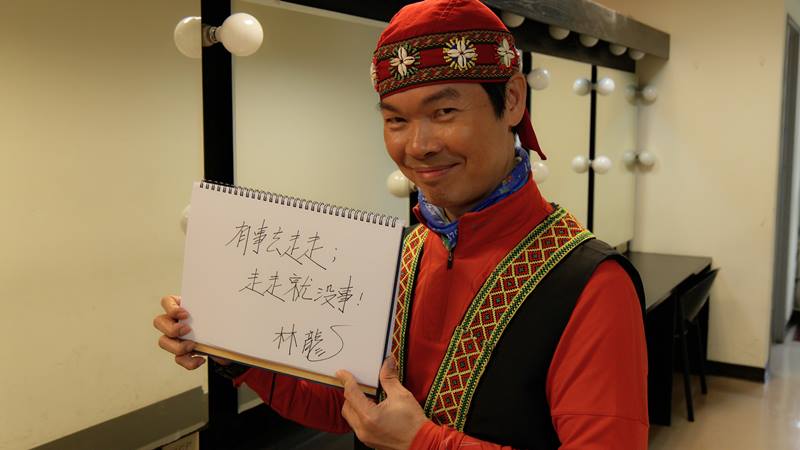 有事去走走；
走走就沒事！
林龍